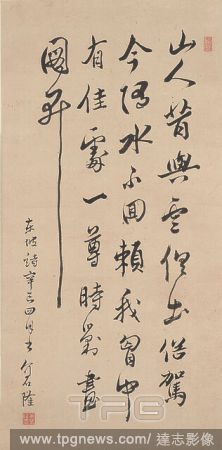 山人昔與雲俱出俗駕
今隨水不回賴我胸中
有佳處一尊時對畫
圖開
東坡詩辛亥四月
TPG
www.tpgnews.com / 達志影像